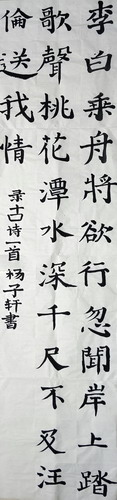 李白乘舟將欲行忽聞岸上踏
歌聲桃花潭水深千尺不及汪
倫送我情
录古诗一首 杨子轩書